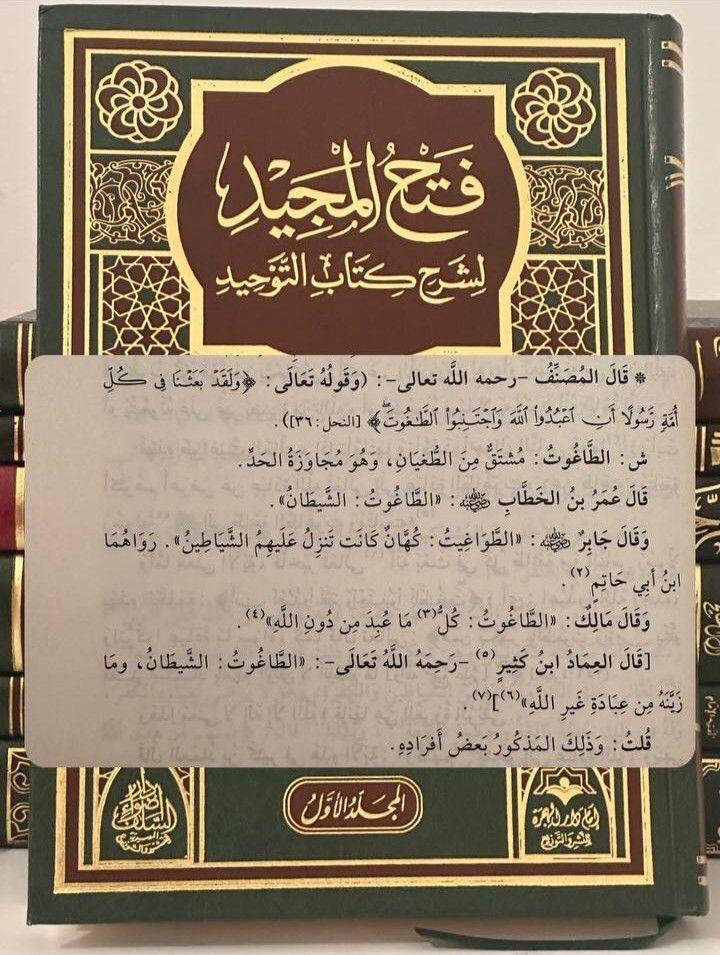 فَتْحُ المَجِيْدِ
لِشَرحِ كِتَابِ التَّوْحِيدِ
* قَالَ المُصَنِّفُ -رحمه اللَّه تعالى-: (وَقَولُهُ تَعَالَى: ﴿وَلَقَدْ بَعَثْنَا فِي كُلِّ
أُمَّةٍ رَّسُولًا أَنِ اعْبُدُوا اللَّهَ وَاجْتَنِبُوا الطَّاغُوتَ﴾ [النحل:٣٦]).
ش: الطَّاغُوتُ: مُشتَقٌّ مِنَ الطُّغيَانِ، وَهُوَ مُجَاوَزَةُ الحَدِّ.
قَالَ عُمَرُ بنُ الخَطَّابِ ﵁: «الطَّاغُوتُ: الشَّيطَانُ».
وَقَالَ جَابِرٌ ﵁: «الطَّوَاغِيتُ: كُهَّانٌ كَانَت تَنزِلُ عَلَيهِمُ الشَّيَاطِينُ». رَوَاهُمَا
ابنُ أَبِي حَاتِمٍ(٢)
وَقَالَ مَالِكٌ: «الطَّاغُوتُ: كُلُّ(٣) مَا عُبِدَ مِن دُونِ اللَّهِ»(٤).
[قَالَ العِمَادُ ابنُ كَثِيرٍ(٥) -رَحِمَهُ اللَّهُ تَعَالَى-: «الطَّاغُوتُ: الشَّيطَانُ، ومَا
زَيَّنَهُ مِن عِبَادَةِ غَيرِ اللَّهِ»(٦)](٧).
قُلتُ: وَذَلِكَ المَذكُورُ بَعضُ أَفرَادِهِ.
المجلد الأول
دار
أضواء
السلف
المصرية
إمام دار الهجرة
للنشر والتوزيع